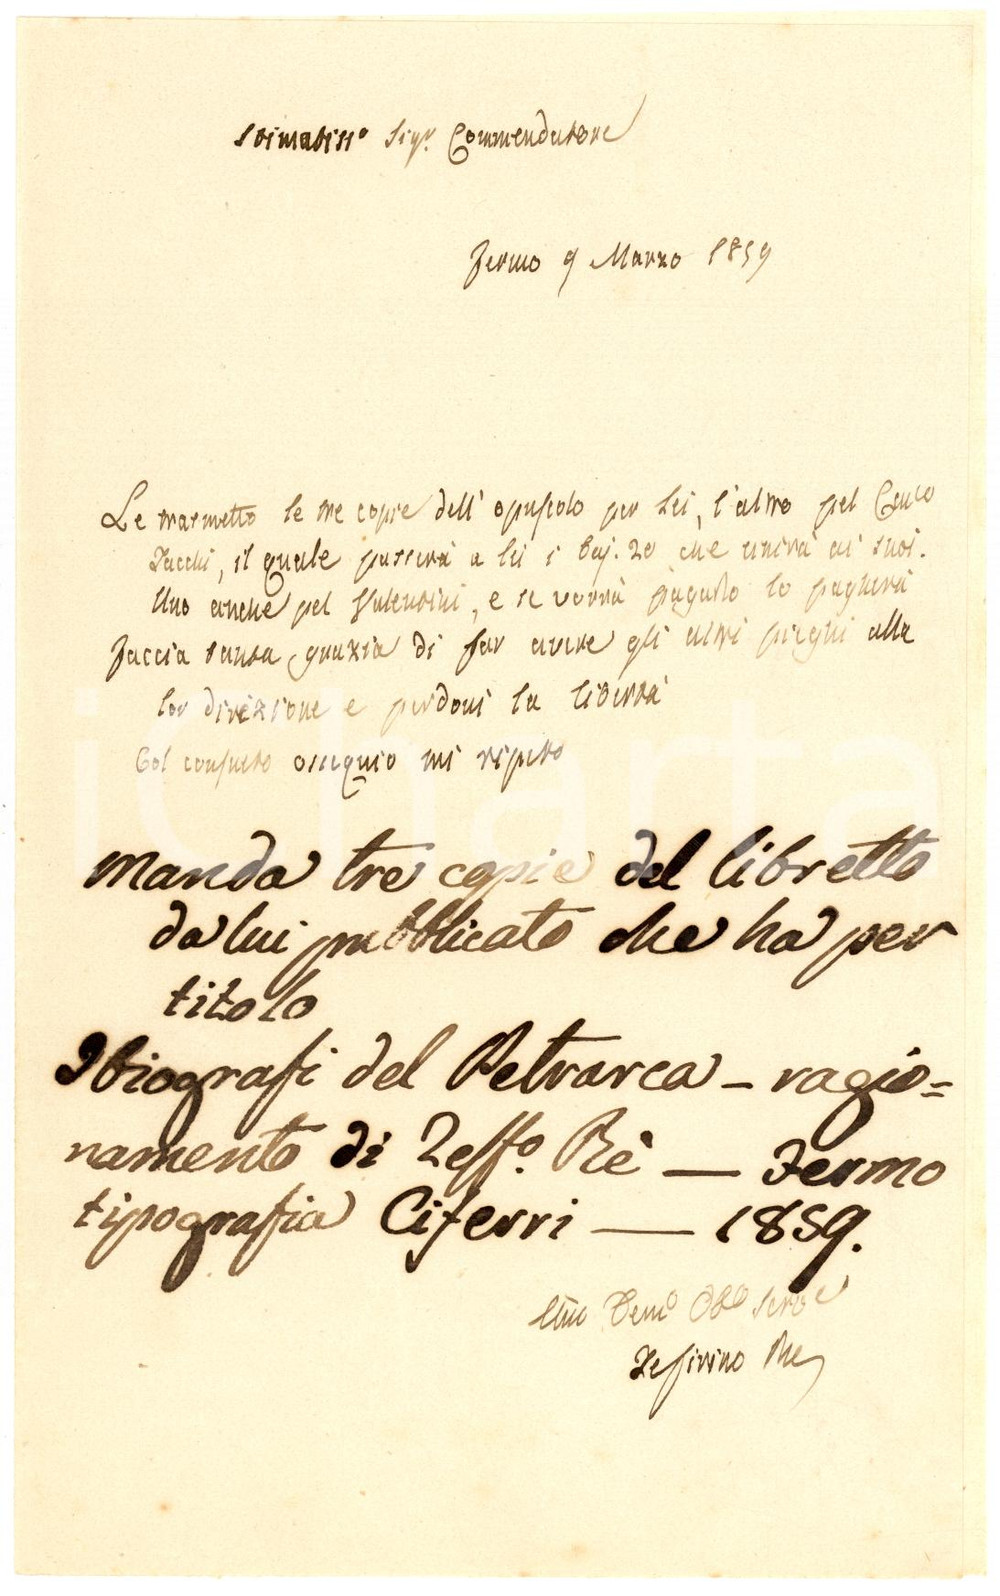 Stimatiss.o Sig.r Commendatore
Fermo 9 Marzo 1859
Le trasmetto le tre copie dell' opuscolo per Lei, l'altro pel
il quale passerà a lei i baj. 20 che unirà ai suoi.
Uno anche pel Valentini, e se vorrà pagarlo lo pagherà
Faccia tanta grazia di far avere gli altri pieghi alla
lor direzione e perdoni la libertà
Col consueto ossequio mi ripeto
manda tre copie del libretto
da lui pubblicato che ha per
titolo
I biografi del Petrarca - ragio=
namento di Zeff.o Rè — Fermo
tipografia Ciferri — 1859.
Dev.o Obb.o Serv.e
Zefirino Re
iCharta